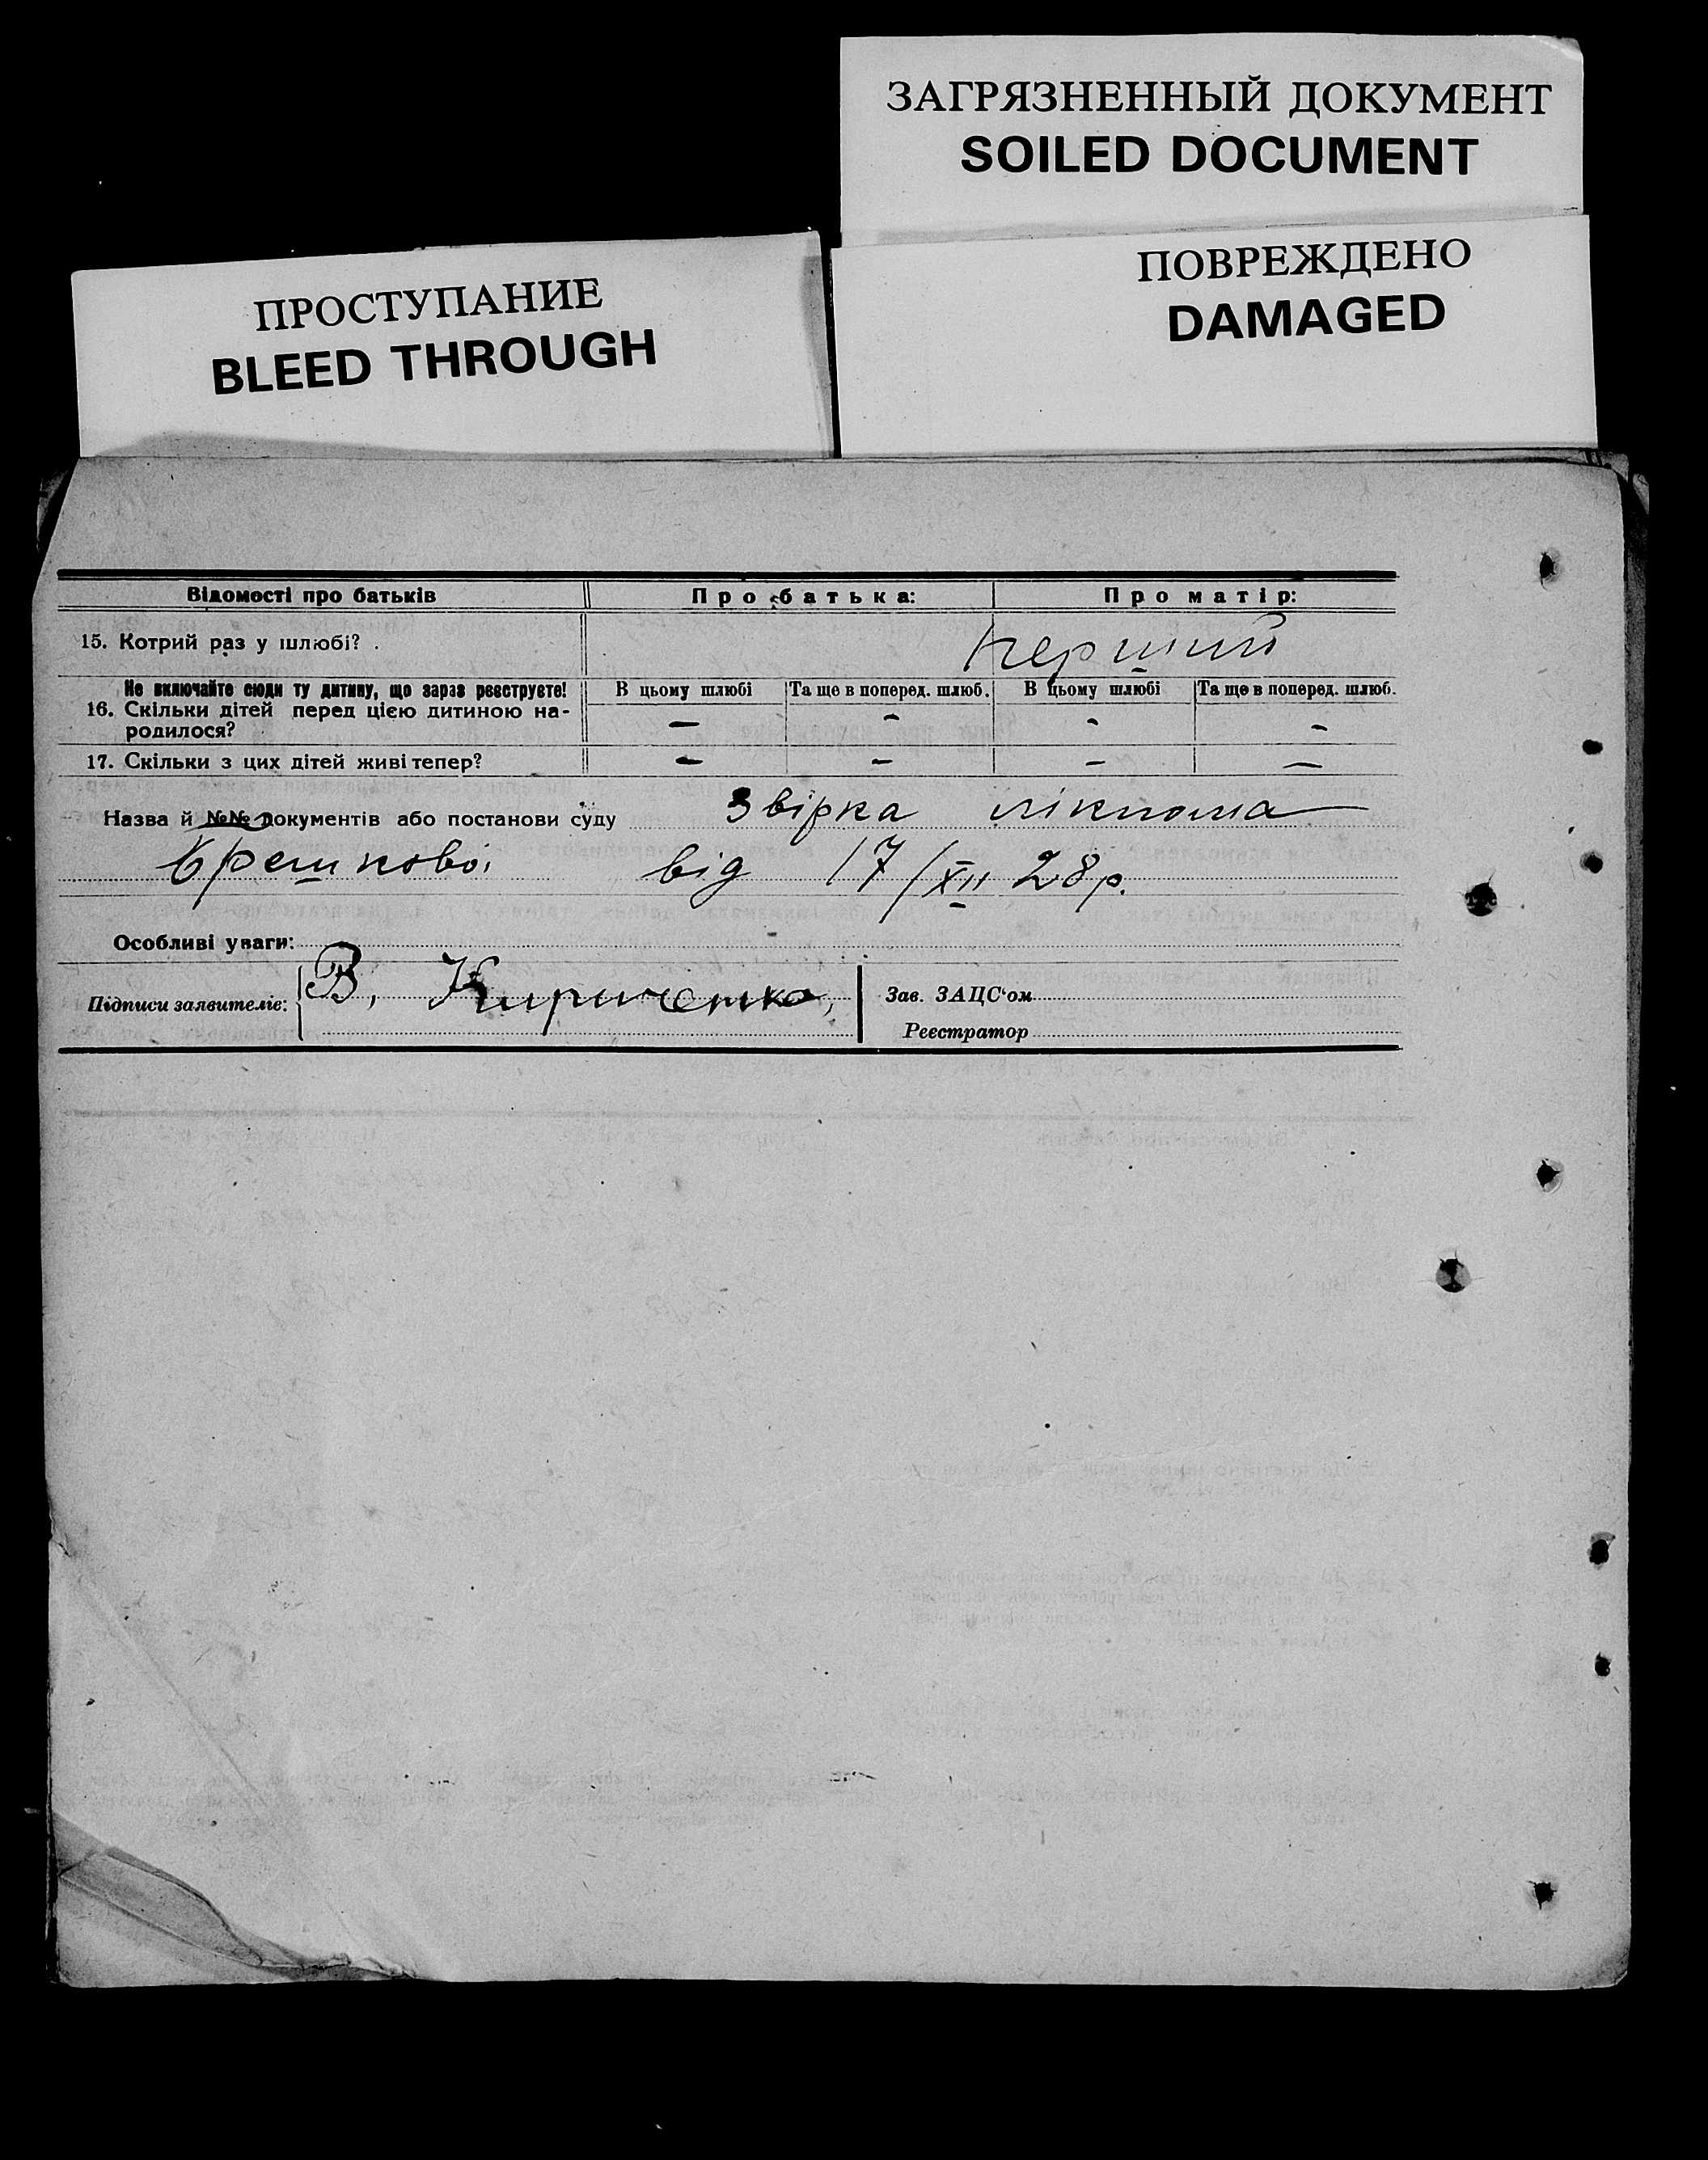 ЗАГРЯЗНЕННЫЙ ДОКУМЕНТ
SOILED DOCUMENT
ПОВРЕЖДЕНО
DAMAGED
ПРОСТУПАНИЕ
BLEED THROUGH
Відомості про батьків Про батька: Про матір:
15. Котрий раз у шлюбі? . перший
Не включайте сюди ту дитину, що зараз реєструєте! В цьому шлюбі Та ще в поперед. шлюб. В цьому шлюбі Та ще в поперед. шлюб.
16. Скільки дітей перед цією дитиною на-
родилося? — — — —
17. Скільки з цих дітей живі тепер? — — — —
Назва й №№ документів або постанови суду Звірка
від 17/XII 28р.
Особливі уваги:
Підписи заявителів: В. Кириченко, Зав. ЗАЦС'ом
Реєстратор